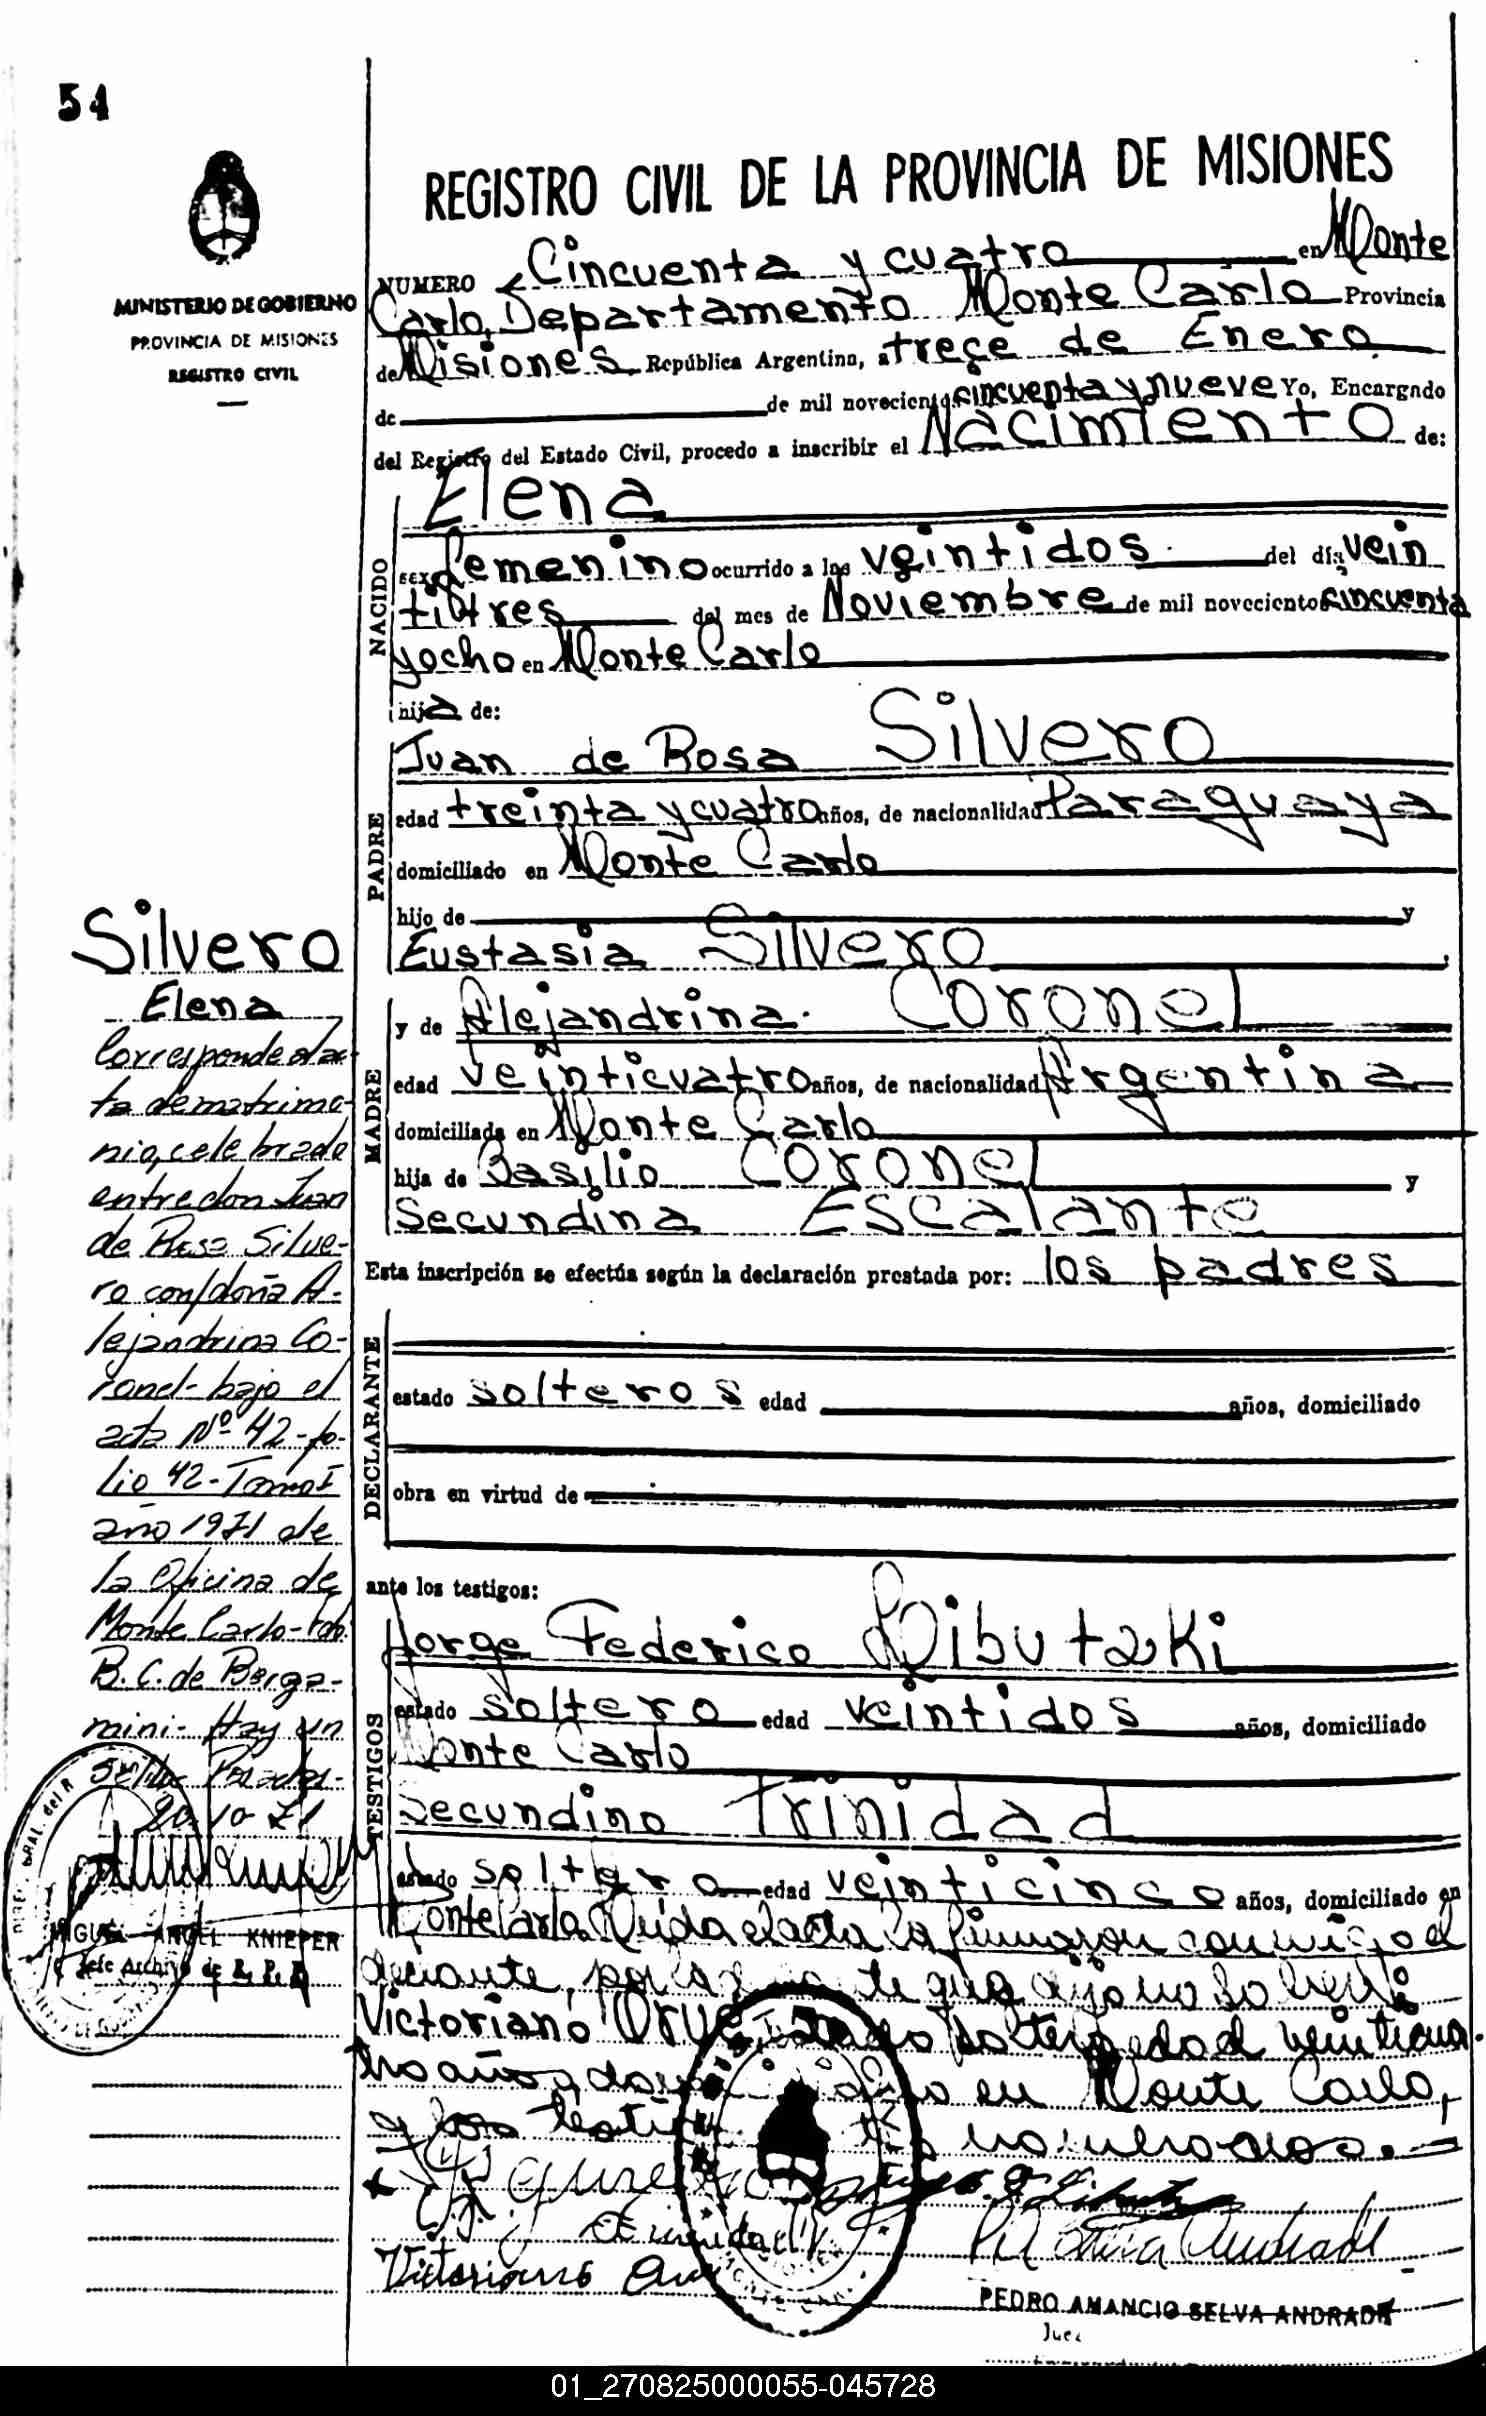 54
REGISTRO CIVIL DE LA PROVINCIA DE MISIONES
MINISTERIO DE GOBIERNO
PROVINCIA DE MISIONES
REGISTRO CIVIL
NUMERO Cincuenta y cuatro en Monte
Carlo, Departamento Monte Carlo Provincia
de Misiones República Argentina, a trece de Enero
de de mil novecientos cincuenta y nueve Yo, Encargado
del Registro del Estado Civil, procedo a inscribir el Nacimiento de:
NACIDO
Elena
sexo femenino ocurrido a las veintidos del día vein
titres del mes de Noviembre de mil novecientos cincuenta
y ocho en Monte Carlo
hija de:
PADRE
Juan de Rosa Silvero
edad treinta y cuatro años, de nacionalidad Paraguaya
domiciliado en Monte Carlo
hijo de y
Eustasia Silvero
MADRE
y de Alejandrina Coronel
edad veinticuatro años, de nacionalidad Argentina
domiciliada en Monte Carlo
hija de Basilio Coronel y
Secundina Escalante
Esta inscripción se efectúa según la declaración prestada por: los padres
DECLARANTE
estado solteros edad años, domiciliado
obra en virtud de
ante los testigos:
TESTIGOS
Jorge Federico Libutzki
estado soltero edad veintidos años, domiciliado
Monte Carlo
Secundino Trinidad
estado soltero edad veinticinco años, domiciliado en
Monte Carlo Leida el acta la firmaron conmigo el
Victoriano Orue, estado soltero edad veinticua
tro años en Monte Carlo,
y los nombrados.=
Victoriano
PEDRO AMANCIO SELVA ANDRADE
Juez
Silvero
Elena
Corresponde al ac-
ta de matrimo-
nio, celebrado
entre don Juan
de Rosa Silve-
ro con/doña A-
lejandrina Co-
ronel- bajo el
acta Nº 42-fo-
lio 42-Tomo I
año 1971 de
la Oficina de
Monte Carlo-
B.C. de Berga-
mini- Hay un
sello- Posadas-
20 10 71
MIGUEL ANGEL KNIEPER
Jefe Archivo de R. P. P.
01_270825000055-045728